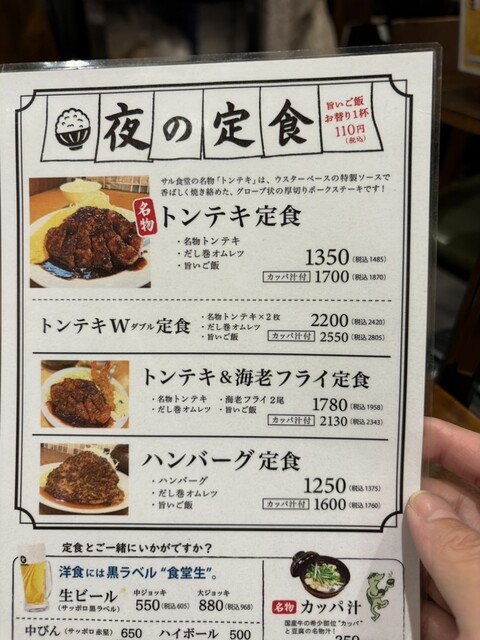 夜の定食
旨いご飯
お替り1杯
110円
(税込)
サル食堂の名物「トンテキ」は、ウスターベースの特製ソースで
香ばしく焼き絡めた、グローブ状の厚切りポークステーキです!
名物
トンテキ定食
・名物トンテキ
・だし巻オムレツ
・旨いご飯
1350(税込1485)
カッパ汁付 1700(税込1870)
トンテキWダブル定食
・名物トンテキ×2枚
・だし巻オムレツ
・旨いご飯
2200(税込2420)
カッパ汁付 2550(税込2805)
トンテキ&海老フライ定食
・名物トンテキ ・海老フライ2尾
・だし巻オムレツ ・旨いご飯
1780(税込1958)
カッパ汁付 2130(税込2343)
ハンバーグ定食
・ハンバーグ
・だし巻オムレツ
・旨いご飯
1250(税込1375)
カッパ汁付 1600(税込1760)
定食とご一緒にいかがですか?
洋食には黒ラベル“食堂生”。
生ビール
(サッポロ黒ラベル)
中ジョッキ
550(税込605)
大ジョッキ
880(税込968)
中びん(サッポロ赤星) 650
ハイボール 500
名物 カッパ汁
国産牛の希少部位“カッパ”
と豆腐の名物汁!
350